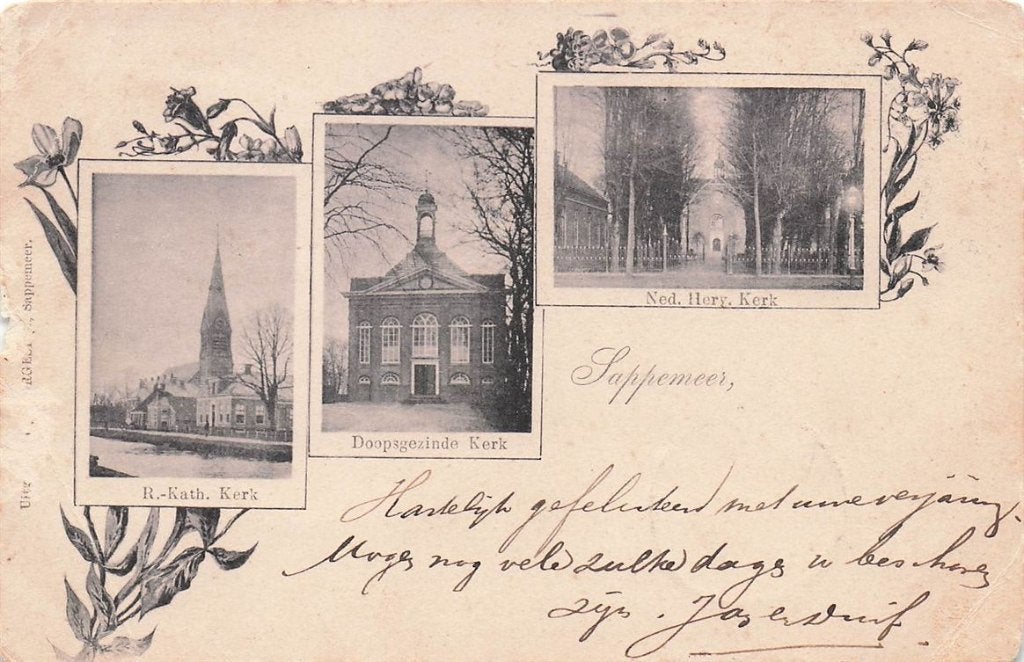 R.-Kath. Kerk
Doopsgezinde Kerk
Ned. Herv. Kerk
Sappemeer,
Hartelijk gefeliciteerd met uwe verjaring.
Moge nog vele zulke dagen u beschoren
zijn.
Uitg
Sappemeer.